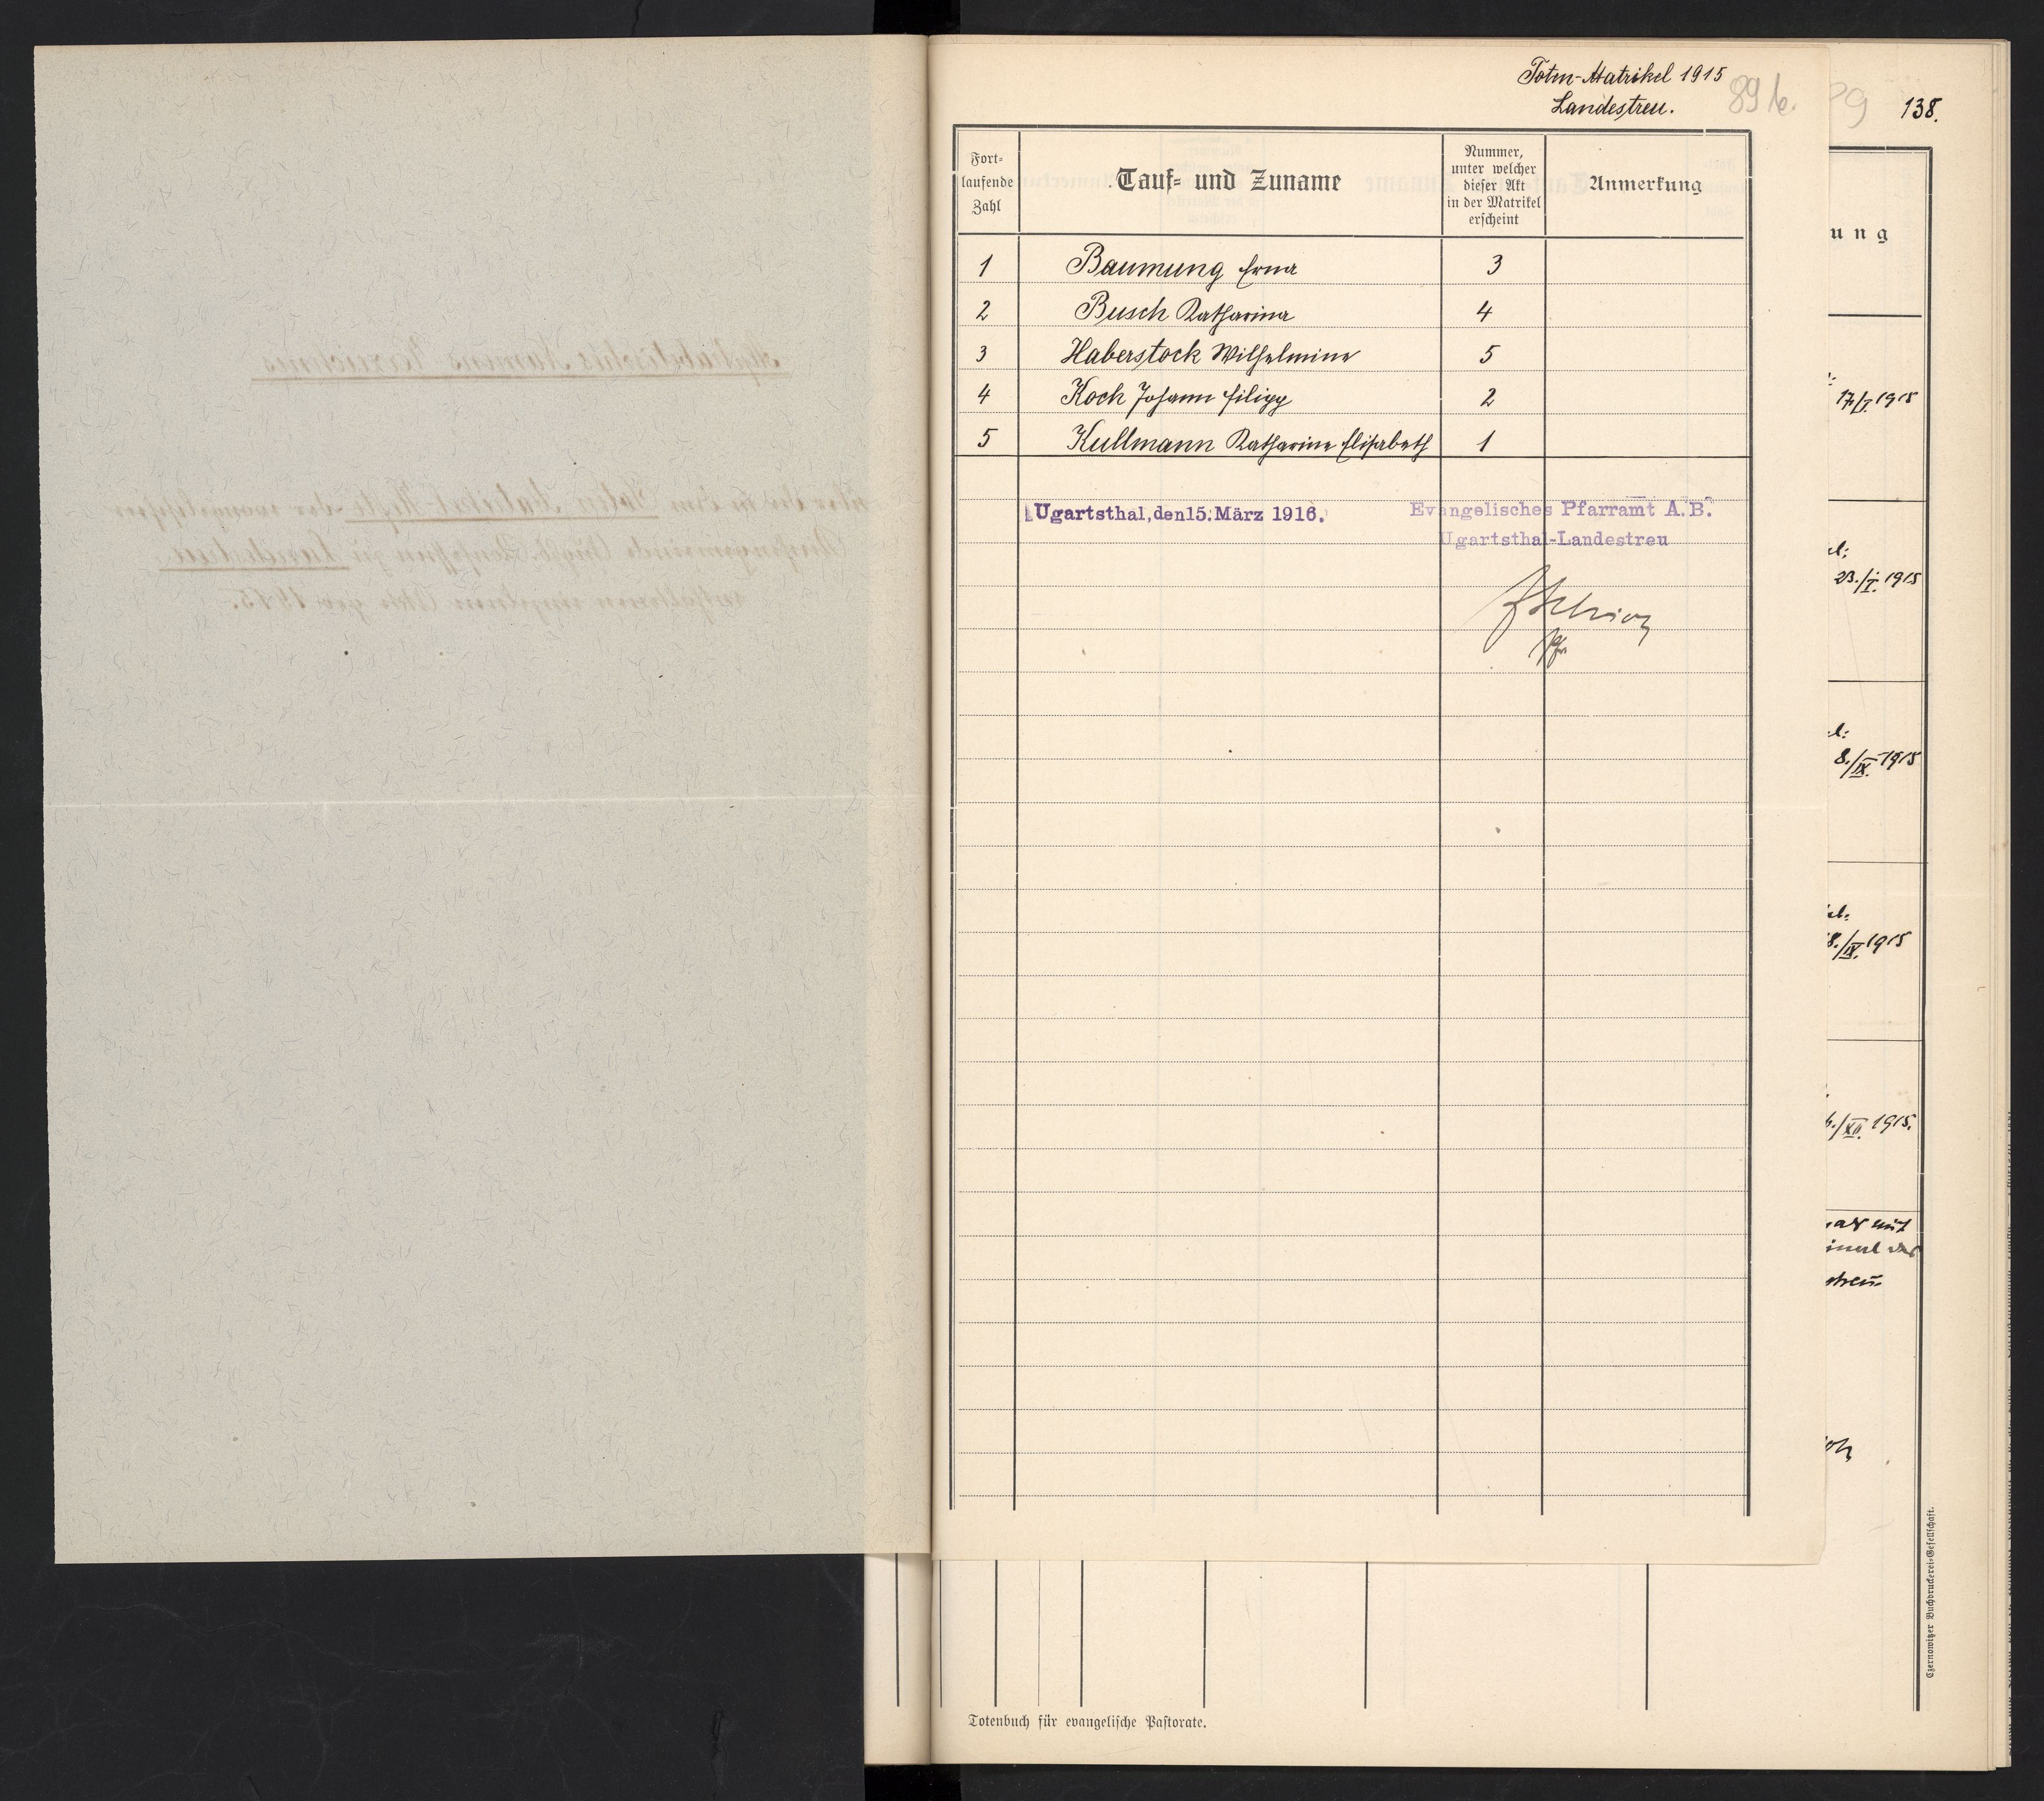 Toten-Matrikel 1915
Landestreu.
89 b.
138.
Fort-
laufende
Zahl
Tauf- und Zuname
Nummer,
unter welcher
dieser Akt
in der Matrikel
erscheint
Anmerkung
ung
1 Baumung Erna 3
2 Busch Katharina 4
3 Haberstock Wilhelmine 5
4 Koch Johann Filipp 2
5 Kullmann Katharina Elisabeth 1
Ugartsthal, den 15. März 1916.
Evangelisches Pfarramt A. B.
Ugartsthal-Landestreu
Pfr
17./I. 1915
23./I. 1915
8./IX. 1915
8./IX. 1915
/XII. 1915.
Totenbuch für evangelische Pastorate.
Czernowitzer Buchdruckerei-Gesellschaft.